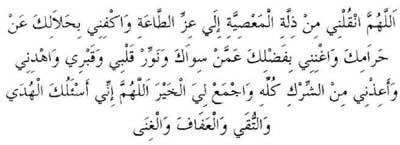 اَللّٰهُمَّ انْقُلْنِي مِنْ ذِلَّةِ الْمَعْصِيَّةِ إِلَي عِزِّ الطَّاعَةِ وَاكْفِنِي بِحَلَالِكَ عَنْ
حَرَامِكَ وَاغْنِنِي بِفَضْلِكَ عَمَّنْ سِوَاكَ وَنَوِّرْ قَلْبِي وَقَبْرِي وَاهْدِنِي
وَأَعِذْنِي مِنْ الشِّرْكِ كُلِّهِ وَاجْمَعْ لِيَ الْخَيْرَ اَللّٰهُمَّ إِنِّي أَسْئَلُكَ الْهُدَي
وَالتُّقَي وَالْعَفَافَ وَالْغِنَى